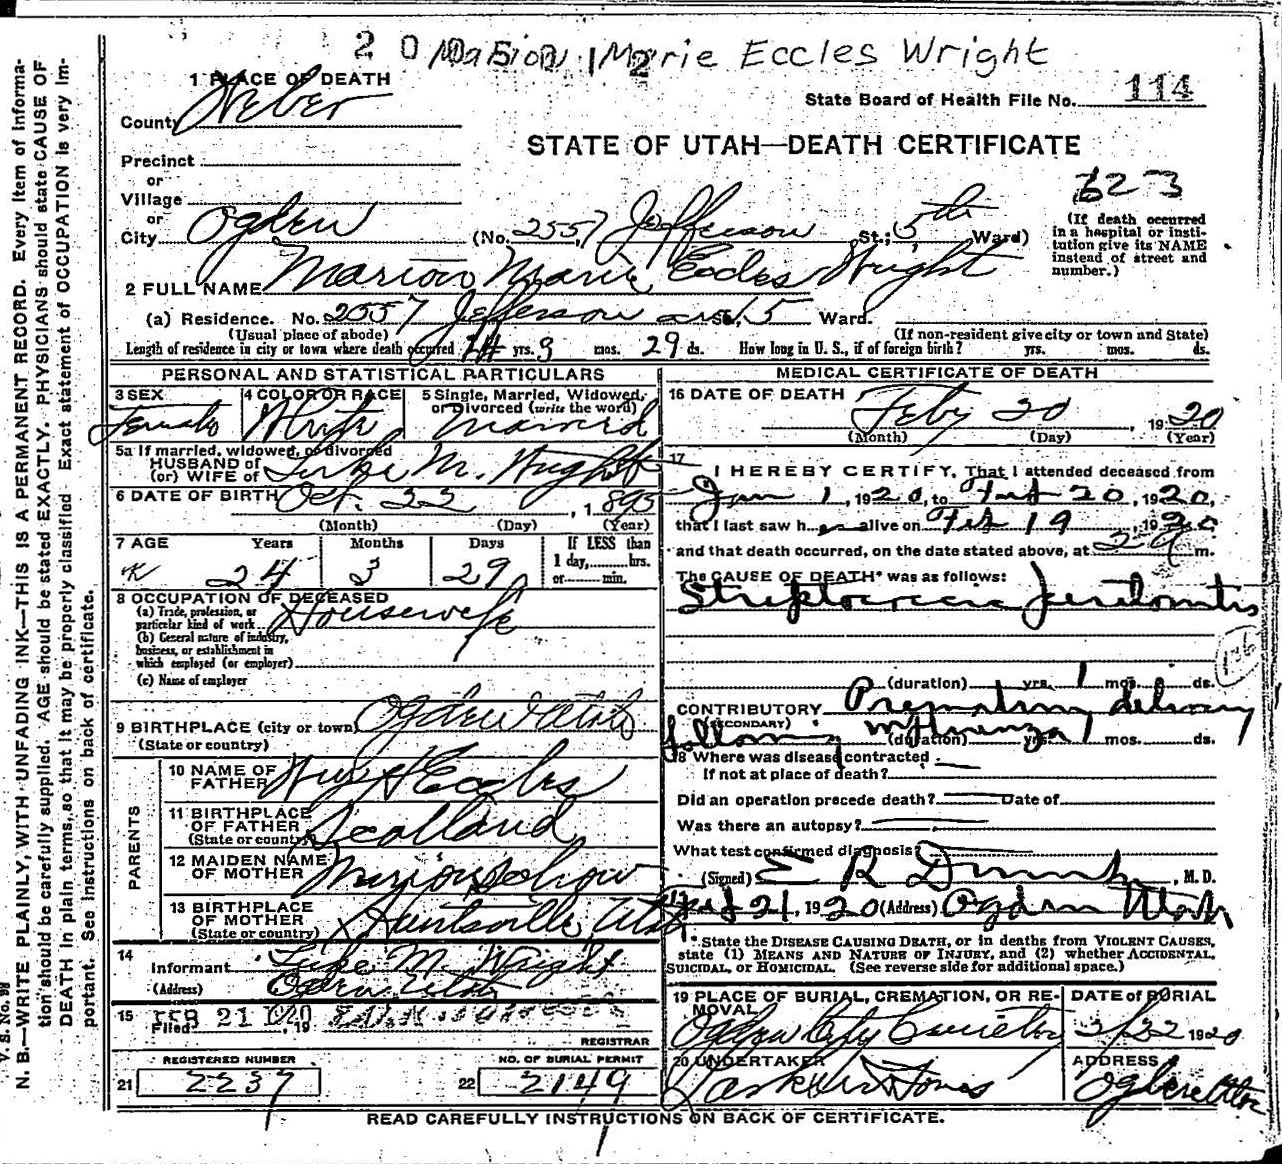 2 0 Marion Marie Eccles Wright
1 PLACE OF DEATH
State Board of Health File No. 114
County Weber
STATE OF UTAH—DEATH CERTIFICATE
Precinct
or
Village
or
City Ogden (No. 2557 Jefferson St.; 5th Ward)
623
(If death occurred
in a hospital or insti-
tution give its NAME
instead of street and
number.)
2 FULL NAME Marion Marie Eccles Wright
(a) Residence. No. 2557 Jefferson ave St. 5 Ward.
(Usual place of abode) (If non-resident give city or town and State)
Length of residence in city or town where death occurred 24 yrs. 3 mos. 29 ds. How long in U. S., if of foreign birth? yrs. mos. ds.
PERSONAL AND STATISTICAL PARTICULARS
3 SEX Female
4 COLOR OR RACE White
5 Single, Married, Widowed,
or Divorced (write the word)
Married
5a If married, widowed, or divorced
HUSBAND of
(or) WIFE of Luke M. Wright
6 DATE OF BIRTH Oct. 22, 1895
(Month) (Day) (Year)
7 AGE Years Months Days If LESS than
1 day, hrs.
24 3 29 or min.
8 OCCUPATION OF DECEASED
(a) Trade, profession, or
particular kind of work Housewife
(b) General nature of industry,
business, or establishment in
which employed (or employer)
(c) Name of employer
9 BIRTHPLACE (city or town) Ogden Utah
(State or country)
PARENTS
10 NAME OF
FATHER Eccles
11 BIRTHPLACE
OF FATHER Scotland
(State or country)
12 MAIDEN NAME
OF MOTHER Marion
13 BIRTHPLACE
OF MOTHER Huntsville Utah
(State or country)
14
Informant Luke M. Wright
(Address) Ogden Utah
15
Filed FEB 21 1920, 19
REGISTRAR
REGISTERED NUMBER NO. OF BURIAL PERMIT
21 2237 22 2149
MEDICAL CERTIFICATE OF DEATH
16 DATE OF DEATH
Feby 20, 1920
(Month) (Day) (Year)
17
I HEREBY CERTIFY, That I attended deceased from
Jan 1, 1920, to Feb 20, 1920,
that I last saw her alive on Feb 19, 1920
and that death occurred, on the date stated above, at m.
The CAUSE OF DEATH* was as follows:
Streptococcic Peritonitis
(duration) yrs. 1 mos. ds.
CONTRIBUTORY Premature delivery
(SECONDARY)
following influenza (duration) yrs. 1 mos. ds.
18 Where was disease contracted
If not at place of death?
Did an operation precede death? Date of
Was there an autopsy?
What test confirmed diagnosis?
(Signed) E R , M. D.
Feb 21, 1920 (Address) Ogden Utah
* State the DISEASE CAUSING DEATH, or in deaths from VIOLENT CAUSES,
state (1) MEANS AND NATURE OF INJURY, and (2) whether ACCIDENTAL,
SUICIDAL, OR HOMICIDAL. (See reverse side for additional space.)
19 PLACE OF BURIAL, CREMATION, OR RE-
MOVAL
Ogden City Cemetery
DATE of BURIAL
2/22 1920
20 UNDERTAKER
ADDRESS
Ogden Utah
READ CAREFULLY INSTRUCTIONS ON BACK OF CERTIFICATE.
V. S. No. 98
N. B.—WRITE PLAINLY, WITH UNFADING INK—THIS IS A PERMANENT RECORD. Every item of informa-
tion should be carefully supplied. AGE should be stated EXACTLY. PHYSICIANS should state CAUSE OF
DEATH in plain terms, so that it may be properly classified. Exact statement of OCCUPATION is very im-
portant. See instructions on back of certificate.